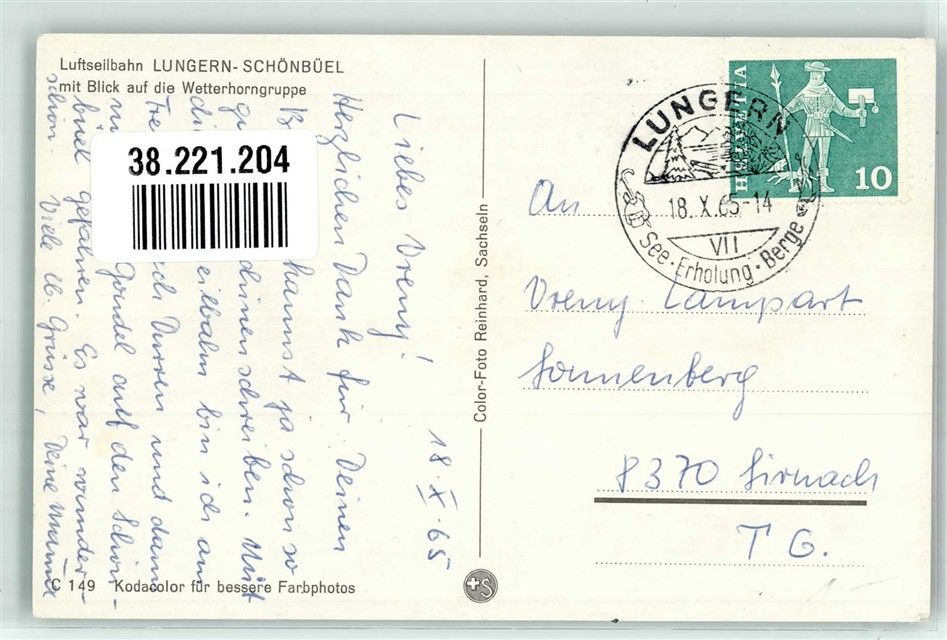 Luftseilbahn LUNGERN-SCHÖNBÜEL
mit Blick auf die Wetterhorngruppe
38.221.204
18.X.65
Liebes Vreny!
Herzlichen Dank für Deinen
kannst ja schon so
schreiben. Mit
eilbahn bin ich am
Turren und dann
Gondel auf den Schön-
büel gefahren. Es war wunder-
schön. Viele lb. Grüsse, Deine Mama
C 149 Kodacolor für bessere Farbphotos
Color-Foto Reinhard, Sachseln
S
HELVETIA
10
LUNGERN
18.X.65-14
VII
See·Erholung·Berge
An
Vreny Lampart
Sonnenberg
8370 Sirnach
TG.